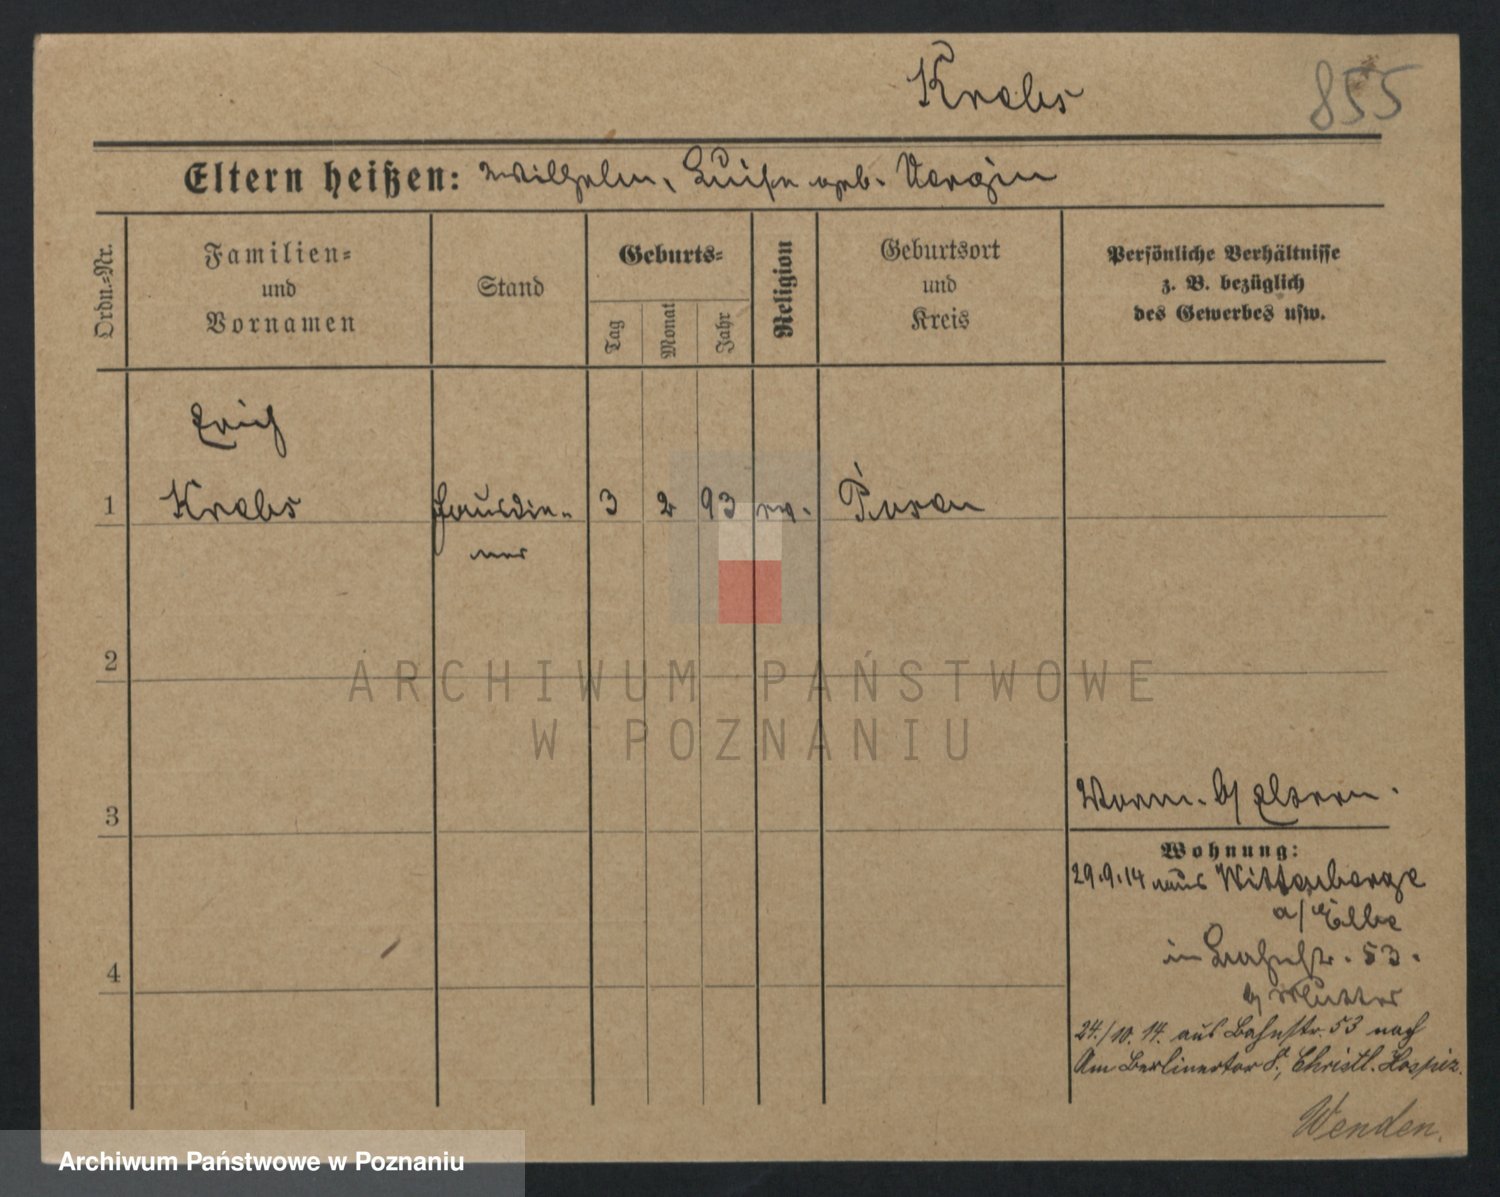 Krebs
855
Eltern heißen: Wilhelm, Luise geb. Vergin
Ordn.=Nr.
Familien=
und
Vornamen
Stand
Geburts=
Tag
Monat
Jahr
Religion
Geburtsort
und
Kreis
Persönliche Verhältnisse
z. B. bezüglich
des Gewerbes usw.
Erich
1 Krebs Hausdie- 3 2 93 ev. Posen
ner
2
ARCHIWUM PAŃSTWOWE
W POZNANIU
3
Vorm. b/ Eltern.
Wohnung:
29.9.14 aus Wittenberge
a/Elbe
in Bahnstr. 53.
b/ Mutter
4
24./10. 14. aus Bahnstr. 53 nach
Am Berlinertor 8., Christl. Hospiz.
Wenden.
Archiwum Państwowe w Poznaniu